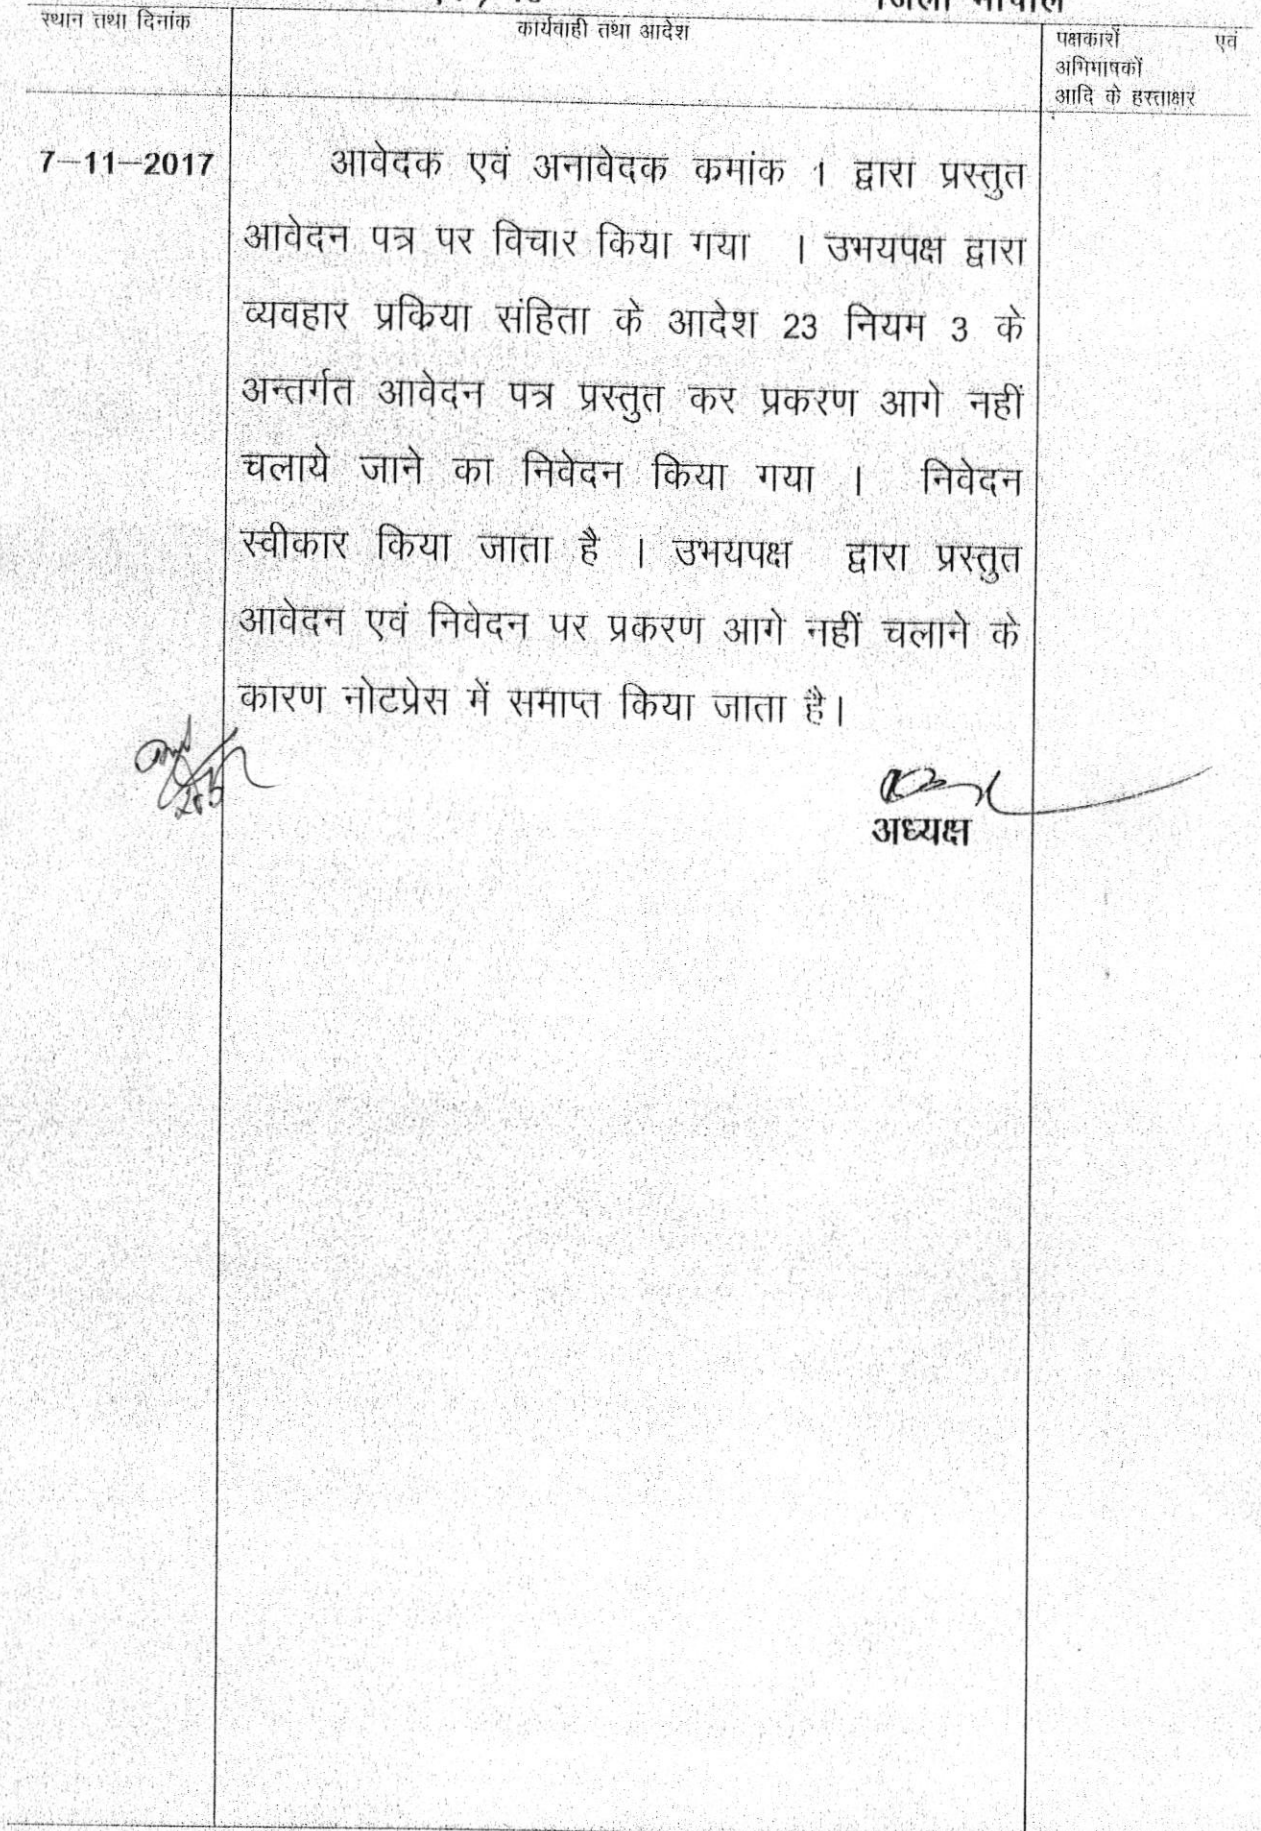 जिला भोपाल
स्थान तथा दिनांक
कार्यवाही तथा आदेश
पक्षकारों एवं
अभिभाषकों
आदि के हस्ताक्षर
7-11-2017
आवेदक एवं अनावेदक कमांक 1 द्वारा प्रस्तुत
आवेदन पत्र पर विचार किया गया । उभयपक्ष द्वारा
व्यवहार प्रकिया संहिता के आदेश 23 नियम 3 के
अन्तर्गत आवेदन पत्र प्रस्तुत कर प्रकरण आगे नहीं
चलाये जाने का निवेदन किया गया । निवेदन
स्वीकार किया जाता है । उभयपक्ष द्वारा प्रस्तुत
आवेदन एवं निवेदन पर प्रकरण आगे नहीं चलाने के
कारण नोटप्रेस में समाप्त किया जाता है।
अध्यक्ष